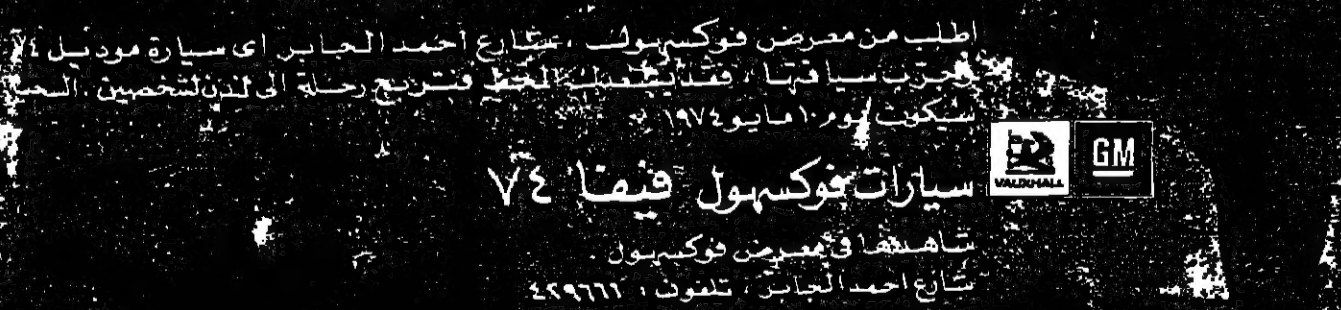 اطلب من معرض فوكسهول ، شارع احمد الجابر اى سيارة موديل ٧٤
وجرّب سياقتها ، فقد يبتسم لك الحظ فتربح رحلة الى لندن لشخصين .
سيكون يوم ١٠ مايو ١٩٧٤
GM
VAUXHALL
سيارات فوكسهول فيفا ٧٤
شاهدها في معرض فوكسهول .
شارع احمد الجابر ، تلفون : ٤٢٩٦٦٦